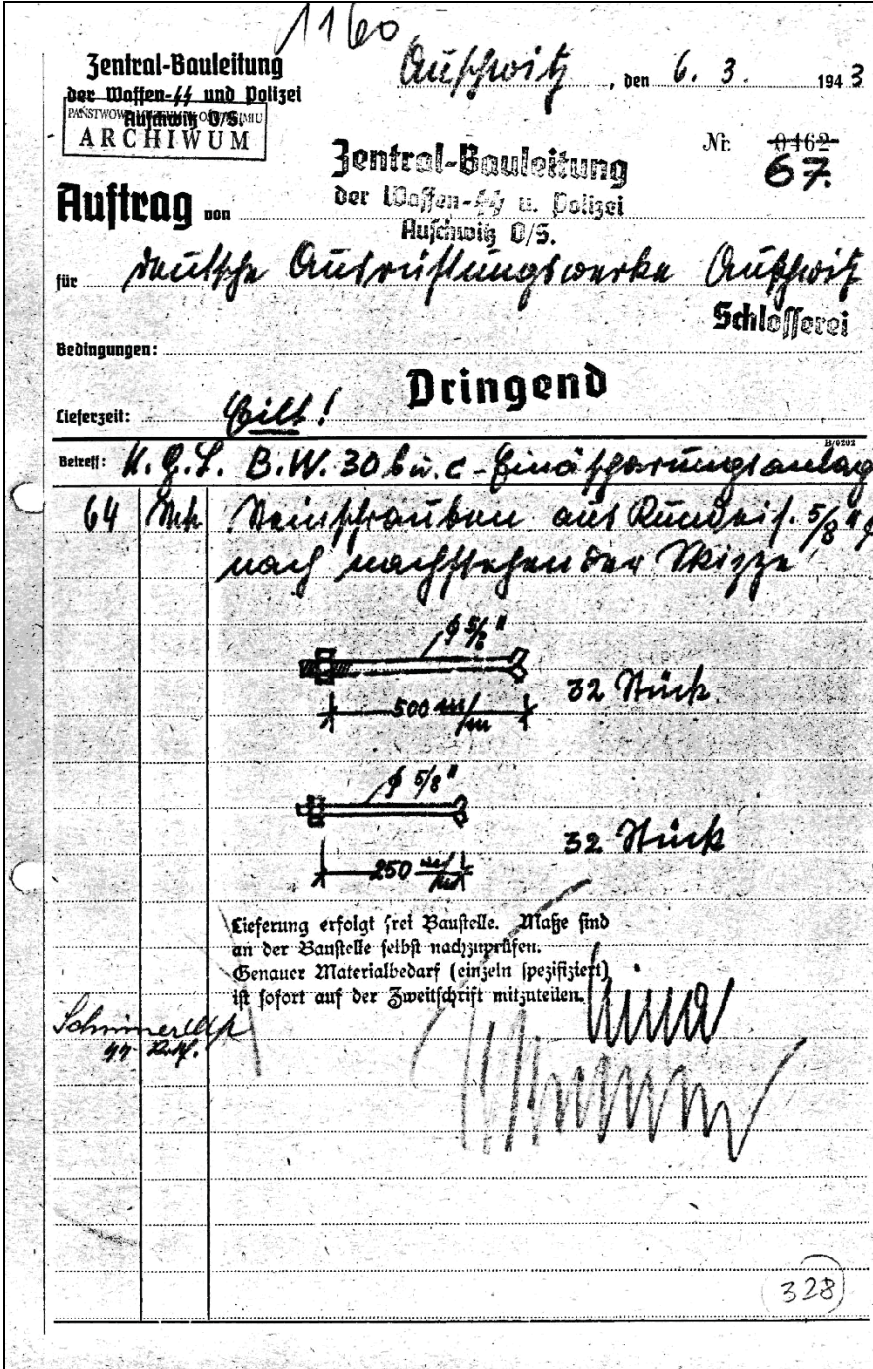 1160
Zentral-Bauleitung
der Waffen-SS und Polizei
Auschwitz O/S.
PAŃSTWOWE OŚWIĘCIMIU
ARCHIWUM
Auschwitz, den 6. 3. 1943
Nr. 0462
67.
Zentral-Bauleitung
der Waffen-SS u. Polizei
Auschwitz O/S.
Auftrag von
für Deutsche Ausrüstungswerke Auschwitz
Schlosserei
Bedingungen:
Dringend
Lieferzeit: Eilt!
B/0202
Betreff: K.G.L. B.W. 30 b u. c - Einäscherungsanlag
64 Stck Steinschrauben aus Rundeis. 5/8" φ
nach nachstehender Skizze
φ 5/8"
500 m/m
32 Stück
φ 5/8"
250 m/m
32 Stück
Lieferung erfolgt frei Baustelle. Maße sind
an der Baustelle selbst nachzuprüfen.
Genauer Materialbedarf (einzeln spezifiziert)
ist sofort auf der Zweitschrift mitzuteilen.
328